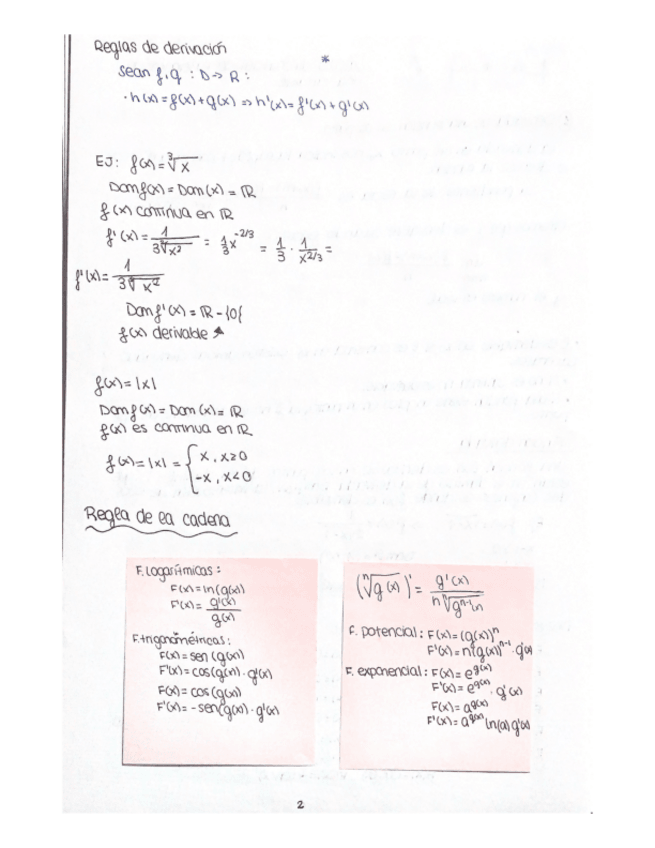 Reglas de derivación
*
Sean f, g : D → R :
· h(x) = f(x) + g(x) ⇒ h'(x) = f'(x) + g'(x)
EJ: f(x) = ∛x
Dom f(x) = Dom (x) = ℝ
f(x) continua en ℝ
f'(x) = 1/(3∛x²) = 1/3 x^(-2/3) = 1/3 · 1/x^(2/3) =
f'(x) = 1/(3∛x²)
Dom f'(x) = ℝ - {0}
f(x) derivable
f(x) = |x|
Dom f(x) = Dom (x) = ℝ
f(x) es continua en ℝ
f(x) = |x| = { x , x≥0
-x , x<0
Regla de la cadena
F. logarítmicas :
F(x) = ln(g(x))
F'(x) = g'(x)/g(x)
F. trigonométricas :
F(x) = sen (g(x))
F'(x) = cos(g(x)) · g'(x)
F(x) = cos (g(x))
F'(x) = - sen(g(x)) · g'(x)
(ⁿ√g(x))' = g'(x)/(n ⁿ√g^(n-1)(x))
F. potencial : F(x) = (g(x))^n
F'(x) = n(g(x))^(n-1) · g'(x)
F. exponencial : F(x) = e^g(x)
F'(x) = e^g(x) · g'(x)
F(x) = a^g(x)
F'(x) = a^g(x) ln(a) g'(x)
2